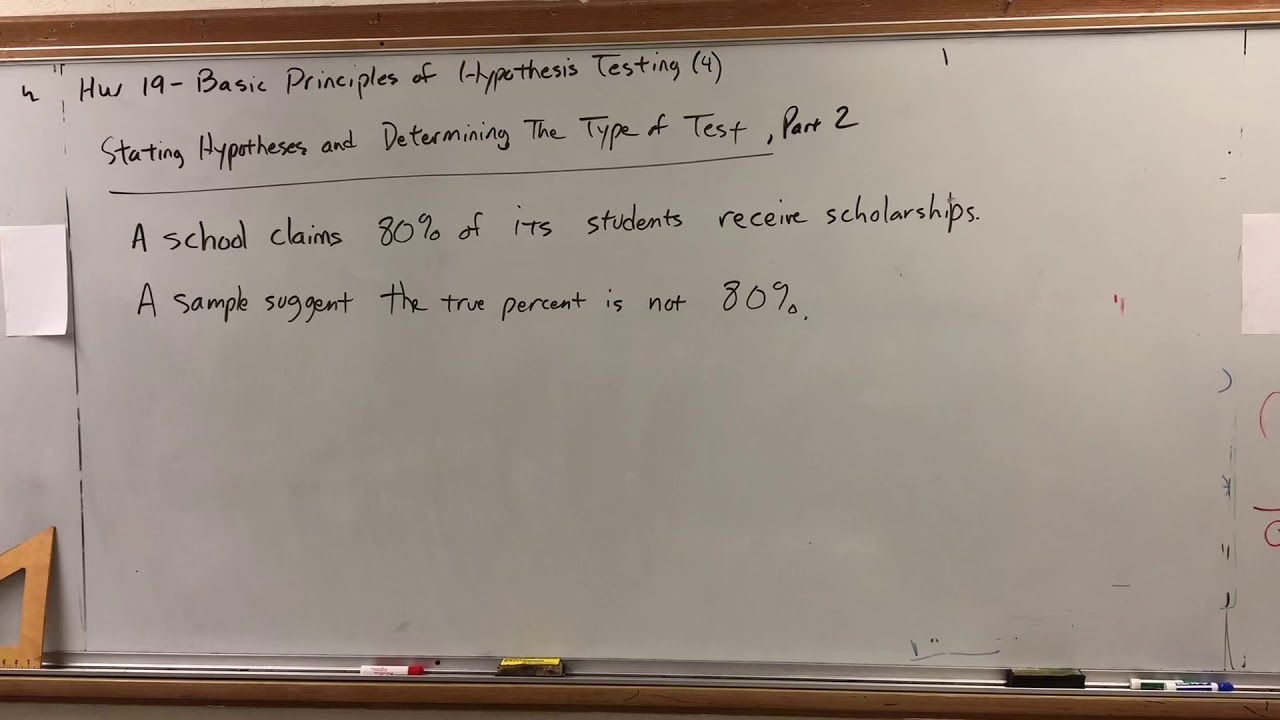 HW 19 - Basic Principles of Hypothesis Testing (4)
Stating Hypotheses and Determining The Type of Test, Part 2
A school claims 80% of its students receive scholarships.
A sample suggent the true percent is not 80%.